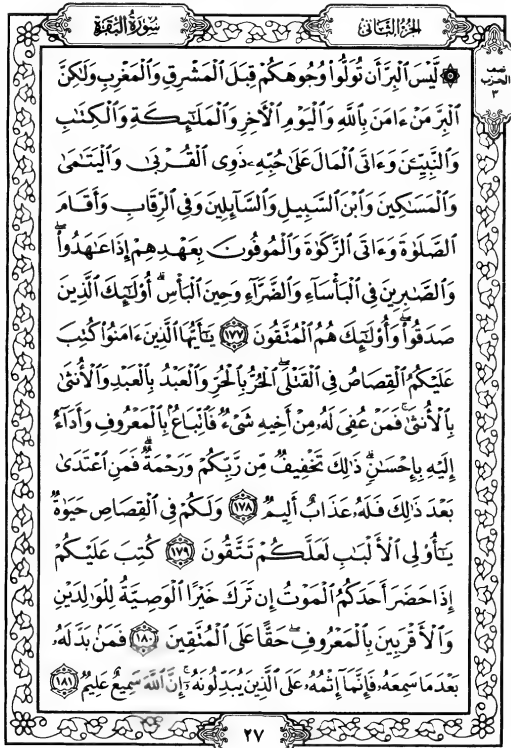 الجزء الثاني
سورة البقرة
نصف
الحزب
٣
۞ لَّيْسَ ٱلْبِرَّ أَن تُوَلُّوا۟ وُجُوهَكُمْ قِبَلَ ٱلْمَشْرِقِ وَٱلْمَغْرِبِ وَلَٰكِنَّ
ٱلْبِرَّ مَنْ ءَامَنَ بِٱللَّهِ وَٱلْيَوْمِ ٱلْءَاخِرِ وَٱلْمَلَٰٓئِكَةِ وَٱلْكِتَٰبِ
وَٱلنَّبِيِّۦنَ وَءَاتَى ٱلْمَالَ عَلَىٰ حُبِّهِۦ ذَوِى ٱلْقُرْبَىٰ وَٱلْيَتَٰمَىٰ
وَٱلْمَسَٰكِينَ وَٱبْنَ ٱلسَّبِيلِ وَٱلسَّآئِلِينَ وَفِى ٱلرِّقَابِ وَأَقَامَ
ٱلصَّلَوٰةَ وَءَاتَى ٱلزَّكَوٰةَ وَٱلْمُوفُونَ بِعَهْدِهِمْ إِذَا عَٰهَدُوا۟ ۖ
وَٱلصَّٰبِرِينَ فِى ٱلْبَأْسَآءِ وَٱلضَّرَّآءِ وَحِينَ ٱلْبَأْسِ ۗ أُو۟لَٰٓئِكَ ٱلَّذِينَ
صَدَقُوا۟ ۖ وَأُو۟لَٰٓئِكَ هُمُ ٱلْمُتَّقُونَ ١٧٧ يَٰٓأَيُّهَا ٱلَّذِينَ ءَامَنُوا۟ كُتِبَ
عَلَيْكُمُ ٱلْقِصَاصُ فِى ٱلْقَتْلَى ۖ ٱلْحُرُّ بِٱلْحُرِّ وَٱلْعَبْدُ بِٱلْعَبْدِ وَٱلْأُنثَىٰ
بِٱلْأُنثَىٰ ۚ فَمَنْ عُفِىَ لَهُۥ مِنْ أَخِيهِ شَىْءٌ فَٱتِّبَاعٌۢ بِٱلْمَعْرُوفِ وَأَدَآءٌ
إِلَيْهِ بِإِحْسَٰنٍ ۗ ذَٰلِكَ تَخْفِيفٌ مِّن رَّبِّكُمْ وَرَحْمَةٌ ۗ فَمَنِ ٱعْتَدَىٰ
بَعْدَ ذَٰلِكَ فَلَهُۥ عَذَابٌ أَلِيمٌ ١٧٨ وَلَكُمْ فِى ٱلْقِصَاصِ حَيَوٰةٌ
يَٰٓأُو۟لِى ٱلْأَلْبَٰبِ لَعَلَّكُمْ تَتَّقُونَ ١٧٩ كُتِبَ عَلَيْكُمْ
إِذَا حَضَرَ أَحَدَكُمُ ٱلْمَوْتُ إِن تَرَكَ خَيْرًا ٱلْوَصِيَّةُ لِلْوَٰلِدَيْنِ
وَٱلْأَقْرَبِينَ بِٱلْمَعْرُوفِ ۖ حَقًّا عَلَى ٱلْمُتَّقِينَ ١٨٠ فَمَنۢ بَدَّلَهُۥ
بَعْدَمَا سَمِعَهُۥ فَإِنَّمَآ إِثْمُهُۥ عَلَى ٱلَّذِينَ يُبَدِّلُونَهُۥٓ ۚ إِنَّ ٱللَّهَ سَمِيعٌ عَلِيمٌ ١٨١
٢٧